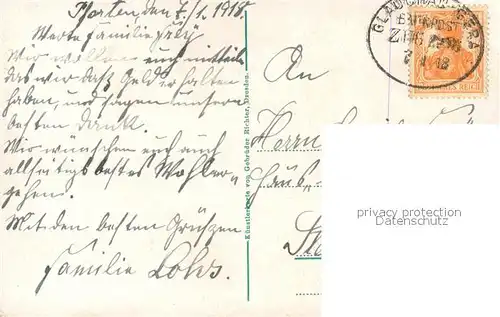 Pforten, den 7/1. 1918.
Werte Familie
Wir wollen euch mitteilen
das wir das Geld erhalten
haben, und sagen unsern
besten Dank.
Wir wünschen euch auch
allseitiges bestes Wohler-
gehen.
Mit den besten Grüßen
Familie Lohrs.
Künstlerkarte von Gebrüder Richter, Dresden.
An
Herrn
Haus
GERA
BAHNPOST
ZUG
18
DEUTSCHES REICH
privacy protection
watermark